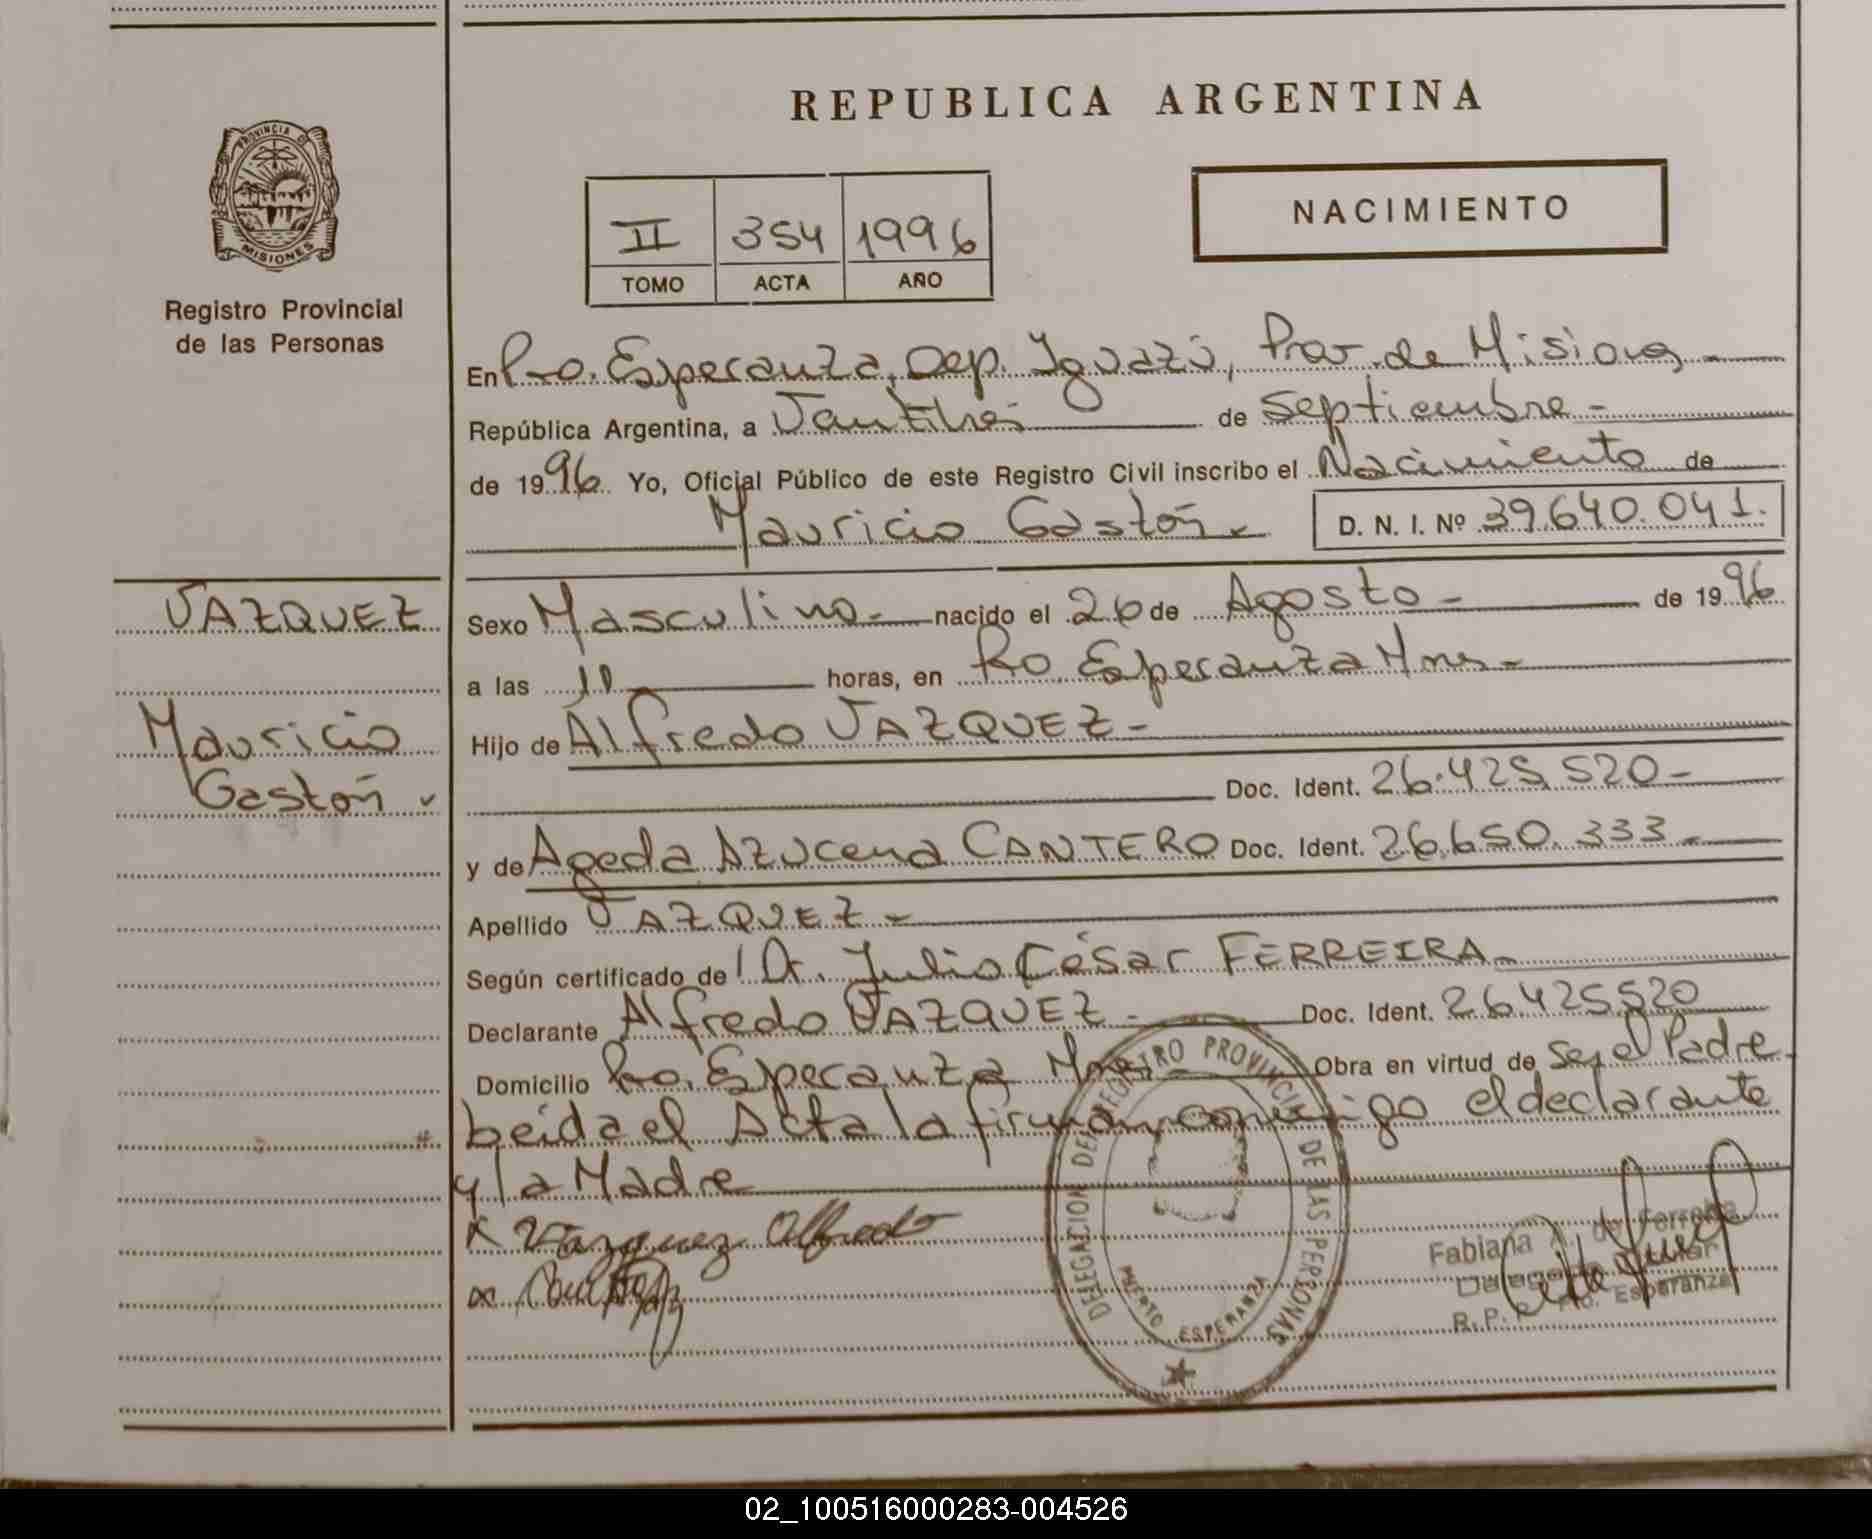 REPUBLICA ARGENTINA
PROVINCIA D
MISIONES
Registro Provincial
de las Personas
II 354 1996
TOMO ACTA AÑO
NACIMIENTO
En Pto. Esperanza, Dep. Iguazú, Prov. de Misiones -
República Argentina, a Veintitres de Septiembre -
de 1996 Yo, Oficial Público de este Registro Civil inscribo el Nacimiento de
Mauricio Gastón D. N. I. Nº 39.640.041.
VAZQUEZ
Mauricio
Gastón
Sexo Masculino - nacido el 26 de Agosto - de 1996
a las 10 horas, en Pto Esperanza Mnes -
Hijo de Alfredo VAZQUEZ -
Doc. Ident. 26.425.520 -
y de Ageda Azucena CANTERO Doc. Ident. 26.650.333 -
Apellido VAZQUEZ -
Según certificado de Dr. Julio César FERREIRA -
Declarante Alfredo VAZQUEZ - Doc. Ident. 26.425.520
Domicilio Pto. Esperanza Mnes - Obra en virtud de Ser el Padre -
Leida el Acta la firman conmigo el declarante
y la Madre
x Vazquez Alfredo
DELEGACION DEL REGISTRO PROVINCIAL DE LAS PERSONAS
PUERTO ESPERANZA
Fabiana A. de Ferreira
Delegada Titular
R. P. P. Pto. Esperanza
02_100516000283-004526